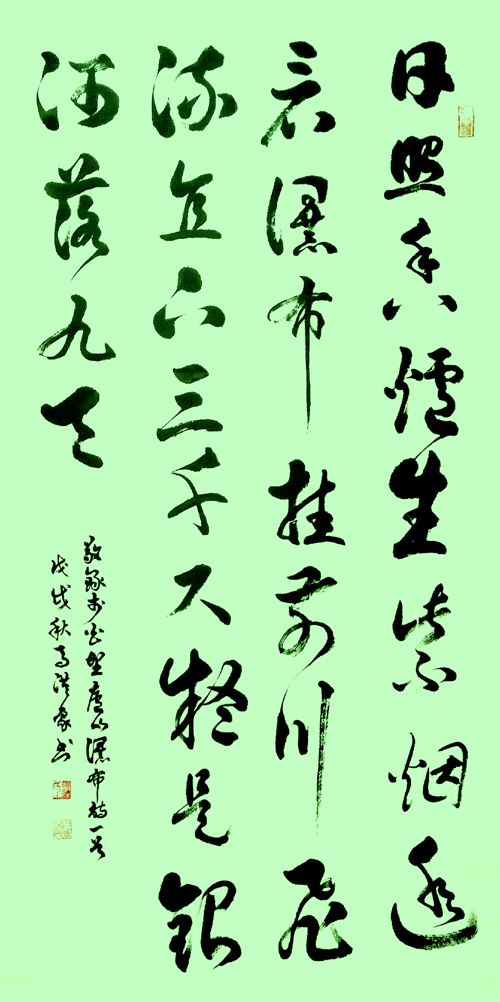 日照香爐生紫烟遥
看瀑布挂前川飛
流直下三千尺疑是銀
河落九天
敬錄李白望廬山瀑布詩一首
戊戌秋書